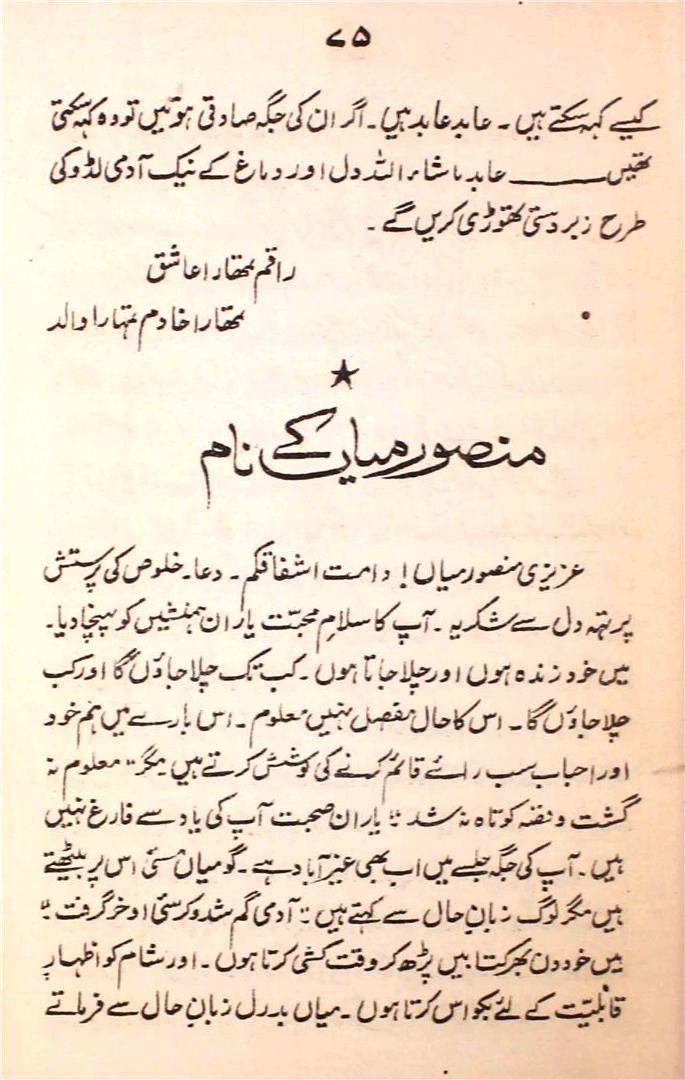 ۷۵
کیسے کہہ سکتے ہیں۔ عابد عابد ہیں۔ اگر ان کی جگہ صادقی ہوتیں تو وہ کہہ سکتی
تھیں ــــــ عابد ماشاء اللہ دل اور دماغ کے نیک آدمی لڈو کی
طرح زبردستی تھوڑی کریں گے۔
راقم تمھارا عاشق
تمھارا خادم تمہارا والد
★
منصور میاں کے نام
عزیزی منصور میاں! دامت اشفاقکم۔ دعا۔ خلوص کی پرستش
پر تہہ دل سے شکریہ۔ آپ کا سلامِ محبّت یاران ہمنشیں کو پہنچا دیا۔
میں خود زندہ ہوں اور چلا جاتا ہوں۔ کب تک چلا جاؤں گا اور کب
چلا جاؤں گا۔ اس کا حال مفصل نہیں معلوم۔ اس بارے میں ہم خود
اور احباب سب رائے قائم کرنے کی کوشش کرتے ہیں مگر "معلوم نہ
گشت و نقہ کوتاہ نہ شد" یاران صحبت آپ کی یاد سے فارغ نہیں
ہیں۔ آپ کی جگہ جلسے میں اب بھی غیر آباد ہے۔ گو میاں اس پر بیٹھتے
ہیں مگر لوگ زبانِ حال سے کہتے ہیں "آدمی گم شد و کرسئی او خر گرفت"
میں خود دن بھر کتابیں پڑھ کر وقت کشی کرتا ہوں۔ اور شام کو اظہارِ
قابلیّت کے لئے بکواس کرتا ہوں۔ میاں بدرل زبانِ حال سے فرماتے